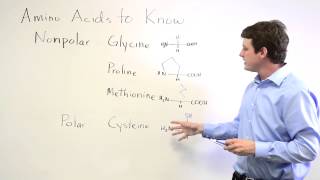 Amino Acids to Know
Nonpolar Glycine H₂N COOH
Proline N COOH
Methionine H₂N COOH
Polar Cysteine SH
H₂N